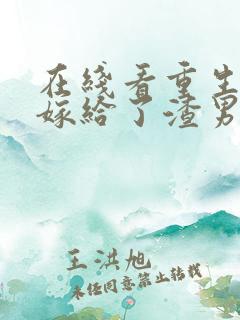 在线看重生
嫁给了渣男
王洪旭
未经同意禁止转载